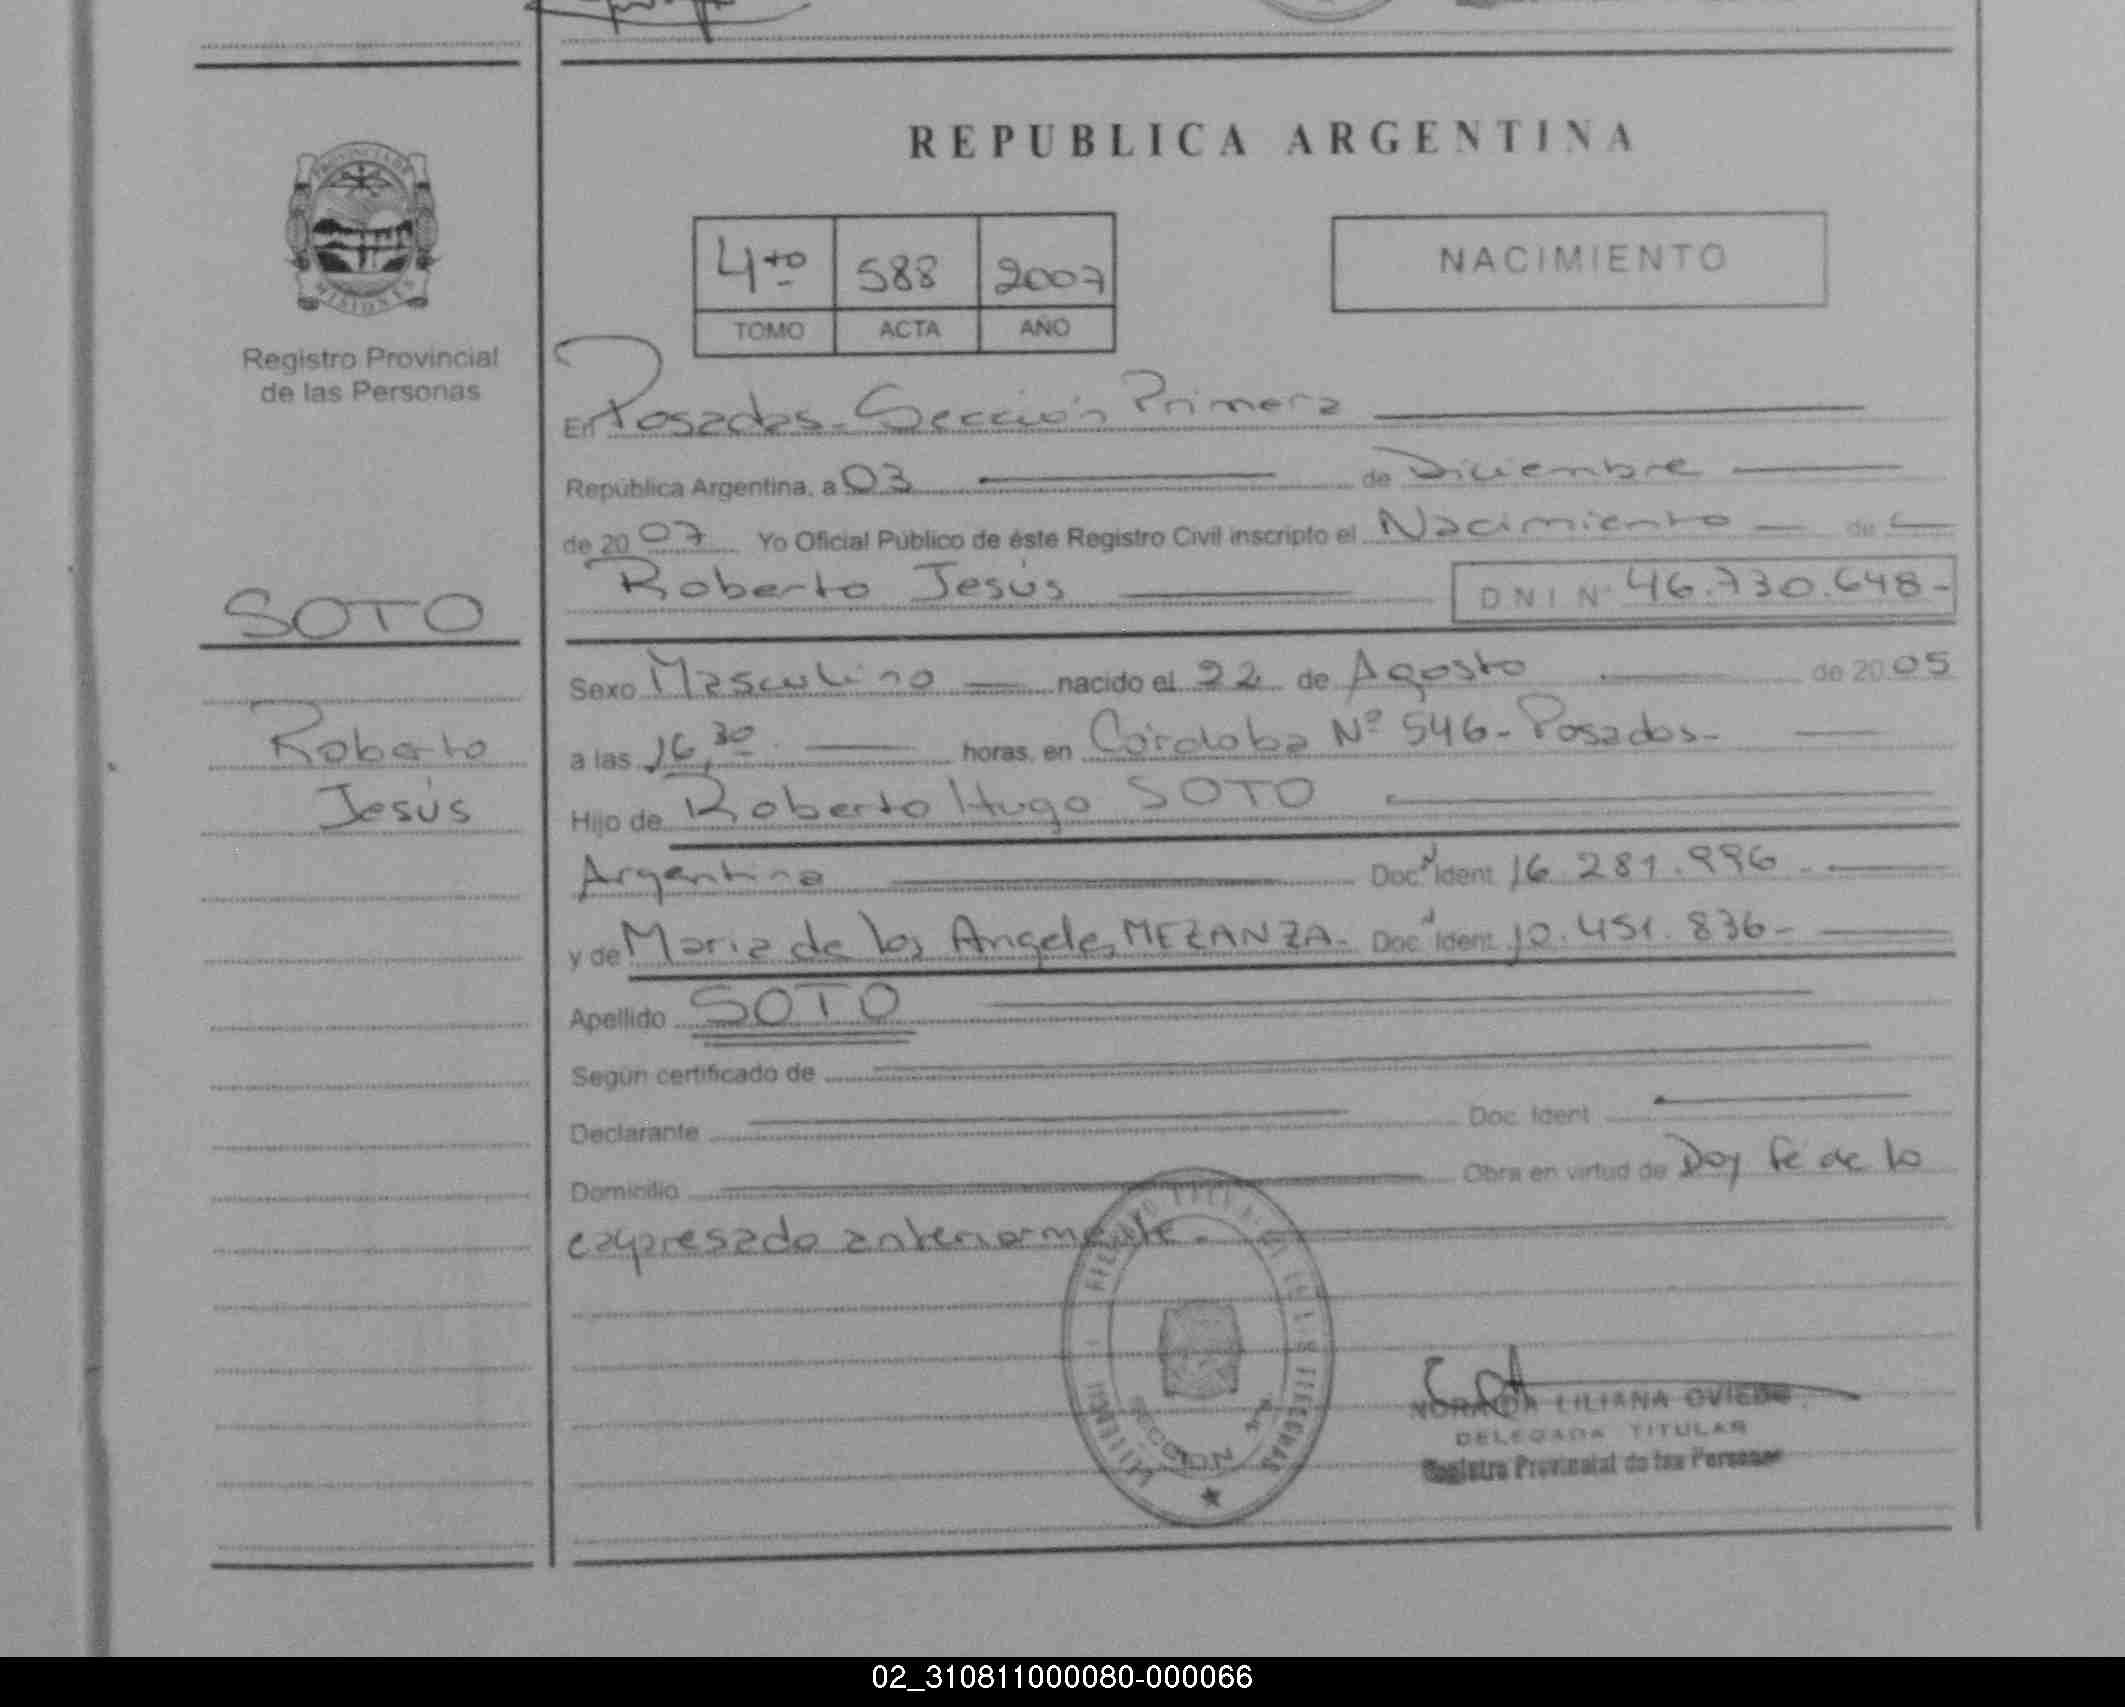 REPUBLICA ARGENTINA
PROVINCIA DE
MISIONES
Registro Provincial
de las Personas
4to 588 2007
TOMO ACTA AÑO
NACIMIENTO
En Posadas - Sección Primera
República Argentina, a 03 de Diciembre
de 2007 Yo Oficial Público de éste Registro Civil inscripto el Nacimiento de
Roberto Jesús DNI Nº 46.730.648-
SOTO
Roberto
Jesús
Sexo Masculino nacido el 22 de Agosto de 2005
a las 16,30 horas, en Córdoba Nº 546 - Posadas-
Hijo de Roberto Hugo SOTO
Argentina Doc. Ident. 16.281.996-
y de Maria de los Angeles MEZANZA- Doc. Ident. 10.451.836-
Apellido SOTO
Según certificado de
Declarante Doc. Ident
Domicilio Obra en virtud de Doy fé de lo
expresado anteriormente.
SECCION 1ra
LILIANA OVIEDO
DELEGADA TITULAR
Registro Provincial de las Personas
02_310811000080-000066